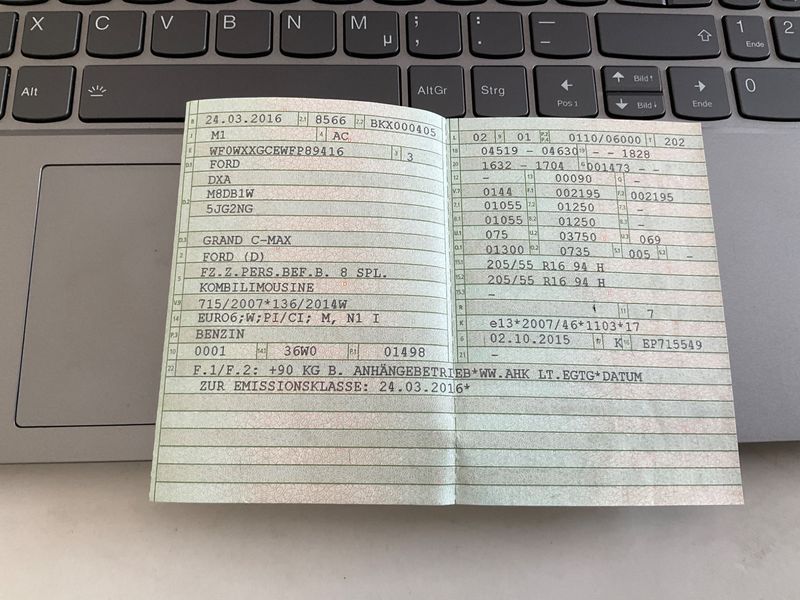 X C V B N M µ ; , : . _ - ⇧ 1 Ende 2
Alt AltGr Strg ← Pos 1 ↑ Bild↑ ↓ Bild↓ → Ende 0
B 24.03.2016 2.1 8566 2.2 BKX000405
J M1 4 AC
E WF0WXXGCEWFP89416 3 3
D.1 FORD
DXA
D.2 M8DB1W
5JG2NG
D.3 GRAND C-MAX
2 FORD (D)
5 FZ.Z.PERS.BEF.B. 8 SPL.
KOMBILIMOUSINE
V.9 715/2007*136/2014W
14 EURO6;W;PI/CI; M, N1 I
P.3 BENZIN
10 0001 14.1 36W0 P.1 01498
L 02 9 01 P.2 P.4 0110/06000 T 202
18 04519 - 04630 19 - - 1828
20 1632 - 1704 G 001473 - -
12 - 13 00090 Q -
V.7 0144 F.1 002195 F.2 002195
7.1 01055 7.2 01250 7.3 -
8.1 01055 8.2 01250 8.3 -
U.1 075 U.2 03750 U.3 069
O.1 01300 O.2 0735 S.1 005 S.2 -
15.1 205/55 R16 94 H
15.2 205/55 R16 94 H
15.3 -
R 11 7
K e13*2007/46*1103*17
6 02.10.2015 17 K 16 EP715549
21 -
22 F.1/F.2: +90 KG B. ANHÄNGEBETRIEB*WW.AHK LT.EGTG*DATUM
ZUR EMISSIONSKLASSE: 24.03.2016*